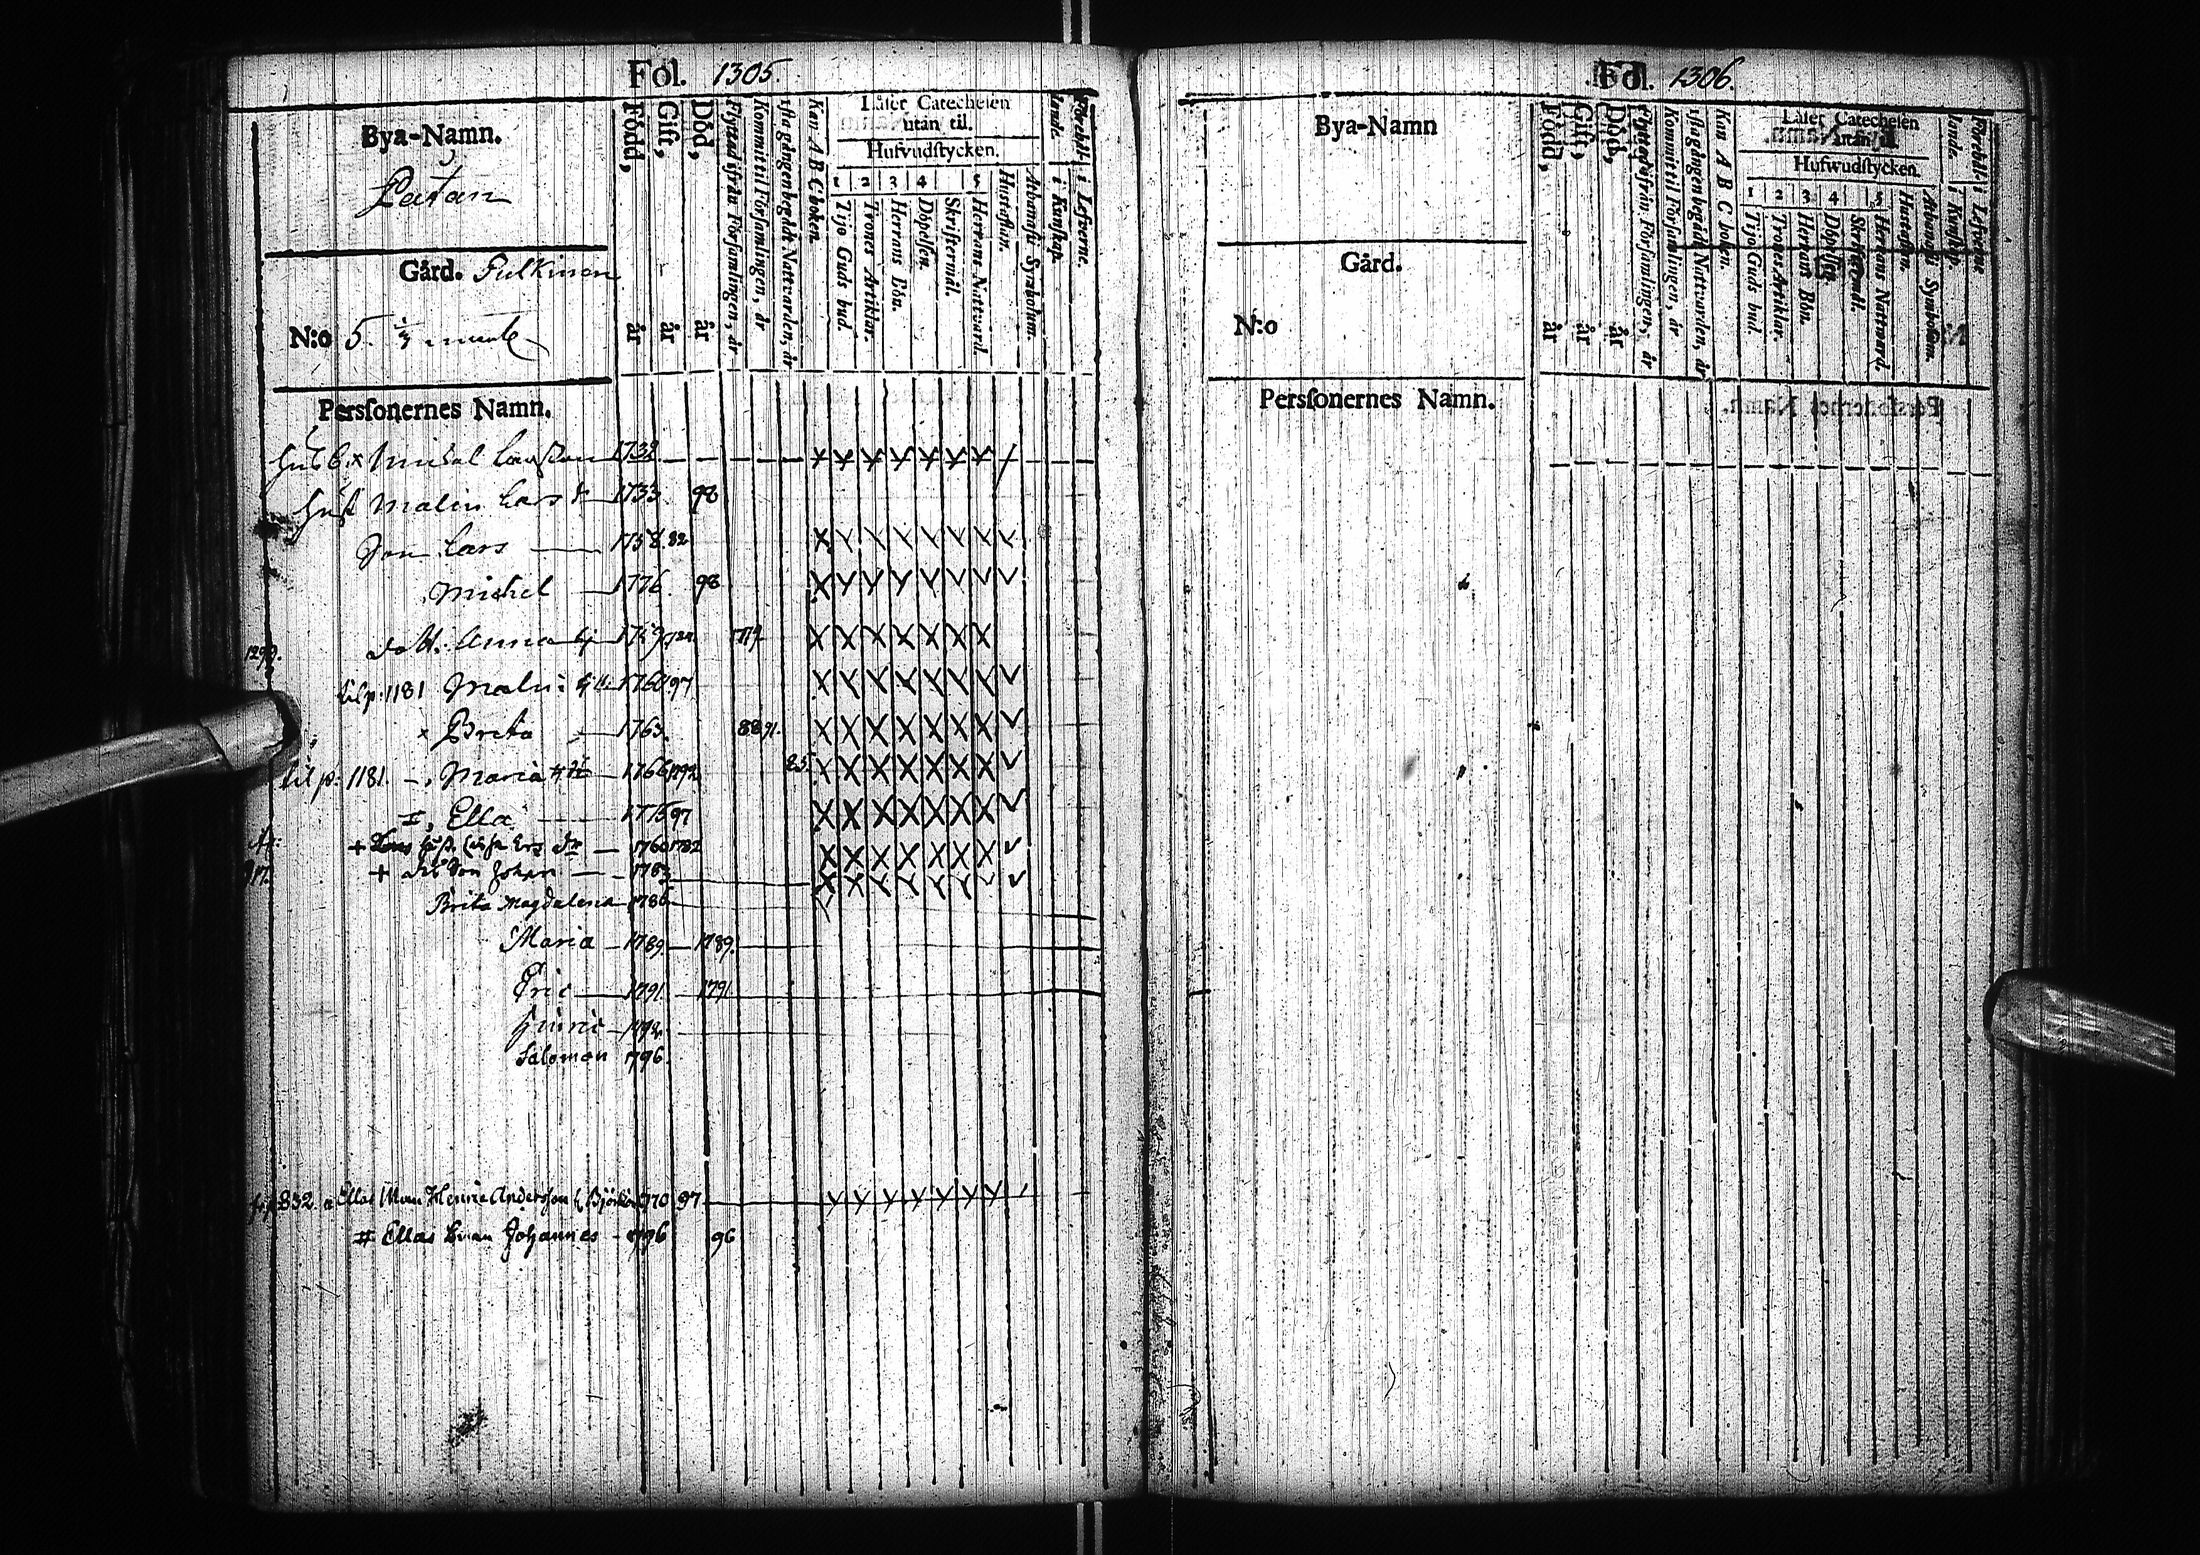 Fol. 1305
Bya-Namn.
Gård. Pulkinen
N:o 5.
Född, år
Gift, år
Död, år
Flyttad ifrån Församlingen, år
Kommit til Församlingen, år
ista gången begådt Nattvarden, år
Kan A B C boken.
Läser Catechesen
utan til.
Hufvudstycken.
1 2 3 4 5
Tijo Guds bud.
Trones Artiklar.
Herrans Bön.
Döpelsen.
Skriftermål.
Herrans Nattvard.
Hustaflan.
Athanasii Symbolum.
Förehållande. i Kunskap.
i Lefverne.
Personernes Namn.
Husb. x Michel Larsson 1732
Hust Malin Lars dr 1733 98
Son Lars 1758. 82
Michel 1776. 98
1299. dott. Anna 1759
til p: 1181 Malin 1760 97
x Brita 1763. 88 91.
til p: 1181. Maria 1766 1792 85
Ella 1775 97
+ hust. Caisa Ers dr 1760 1782
+ Son Johan 1783
Brita Magdalena 1786
Maria 1789. 1789.
Eric 1791 1791
Hinric
Salomon 1796.
832. Ellas Man Henric Andersson 1770 97
# Ellas Johannes 1796 96
Fol. 1306.
Bya-Namn
Gård.
N:o
Född, år
Gift, år
Död, år
Flyttad ifrån Församlingen, år
Kommit til Församlingen, år
ista gången begådt Nattvarden, år
Kan A B C boken.
Läser Catechesen
utan til.
Hufwudstycken.
1 2 3 4 5
Tijo Guds bud.
Trones Artiklar.
Herrans Bön.
Döpelsen.
Skriftermål.
Herrans Nattward.
Hustaflan.
Athanasii Symbolum.
Förehållande. i Kunskap.
i Lefverne
Personernes Namn.